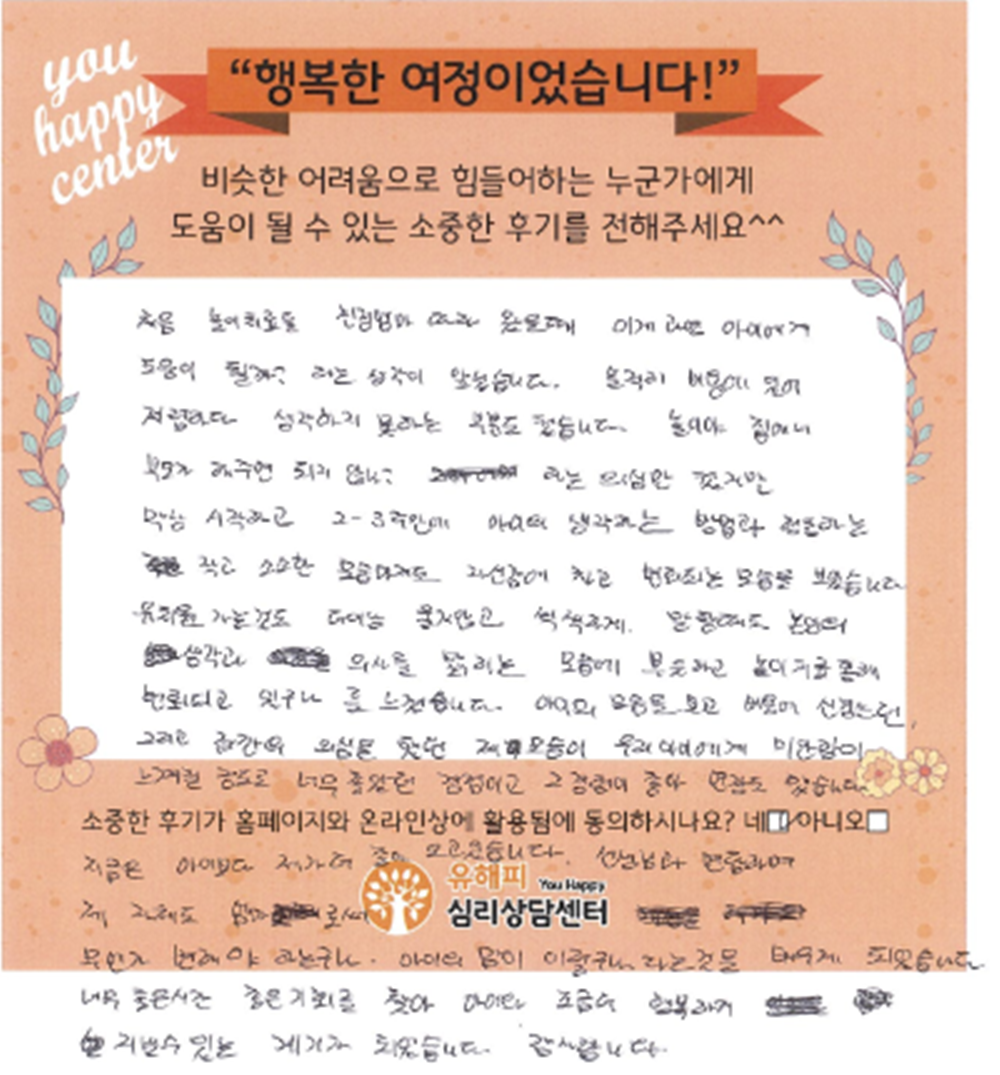 you
happy
center
“행복한 여정이었습니다!”
비슷한 어려움으로 힘들어하는 누군가에게
도움이 될 수 있는 소중한 후기를 전해주세요^^
처음 놀이치료를 왔을때 이게 과연 아이에게
도움이 될까? 라는 생각이 앞섰습니다. 솔직히 비용에 있어
저렴하다 생각하지 못하는 부분도 컸습니다. 놀이야 집에서
부모가 해주면 되지 않나? 라는 의심만 컸지만
막상 시작하고 2-3주만에 아이의 생각하는 방법과 표현하는
작고 소소한 모습마저도 자신감에 차고 변화되는 모습을 보였습니다
유치원 가는것도 울지않고 씩씩하게. 말할때도 본인의
생각과 의사를 밝히는 모습에 뿌듯하고 놀이치료를 통해
변화되고 있구나 를 느꼈습니다. 아이의 모습을 보고 비용에 신경쓰던,
그리고 의심을 했던 제 모습이 우리 아이에게 미안함이
느껴질 정도로 너무 좋았던 경험이고
소중한 후기가 홈페이지와 온라인상에 활용됨에 동의하시나요? 네□ 아니오□
지금은 아이보다 제가 더 선생님과
제
유해피 You Happy
심리상담센터
부모가 변해야 하는구나. 아이의 맘이 이렇구나 라는것을 배우게 되었습니다
너무 좋은시간 좋은기회를 찾아 아이와 조금더 행복하게
지낼수 있는 계기가 되었습니다. 감사합니다.